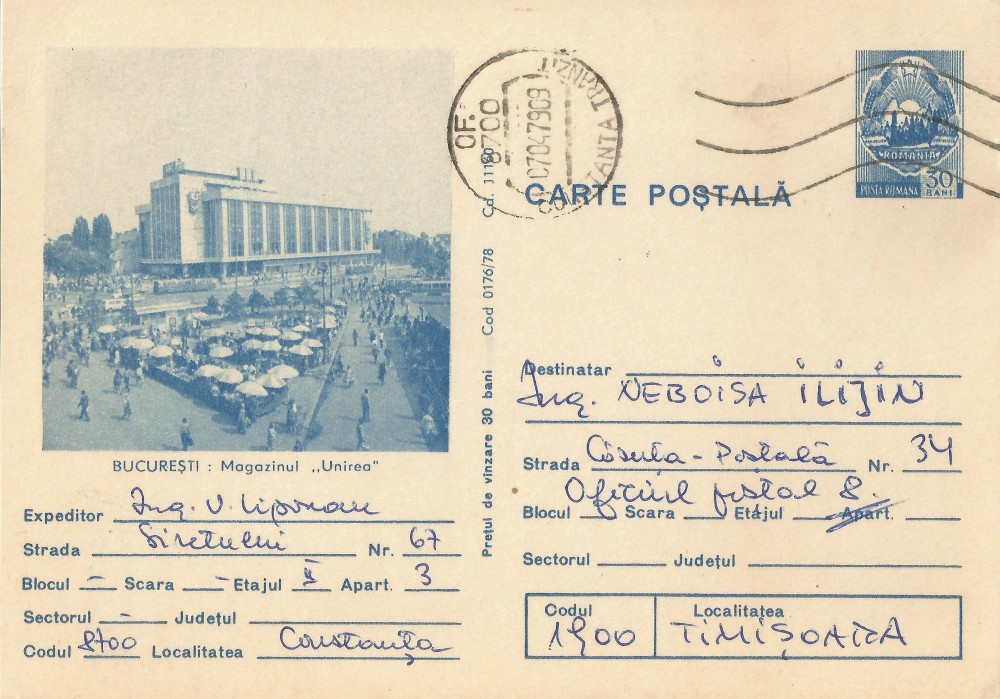 OF. 8700
CONSTANȚA TRANZIT
07047909
ROMANIA
POSTA ROMANA 30 BANI
CARTE POȘTALĂ
BUCUREȘTI : Magazinul „Unirea"
Expeditor Ing. V. Liporau
Strada Siretului Nr. 67
Blocul – Scara – Etajul II Apart. 3
Sectorul – Județul
Codul 8700 Localitatea Constanța
Prețul de vînzare 30 bani Cod 0176/78 Cd. 11160
Destinatar
Ing. NEBOISA ILIJIN
Strada Căsuța - Postală Nr. 34
Oficiul poștal 8.
Blocul Scara Etajul Apart.
Sectorul Județul
Codul Localitatea
1900 TIMIȘOARA